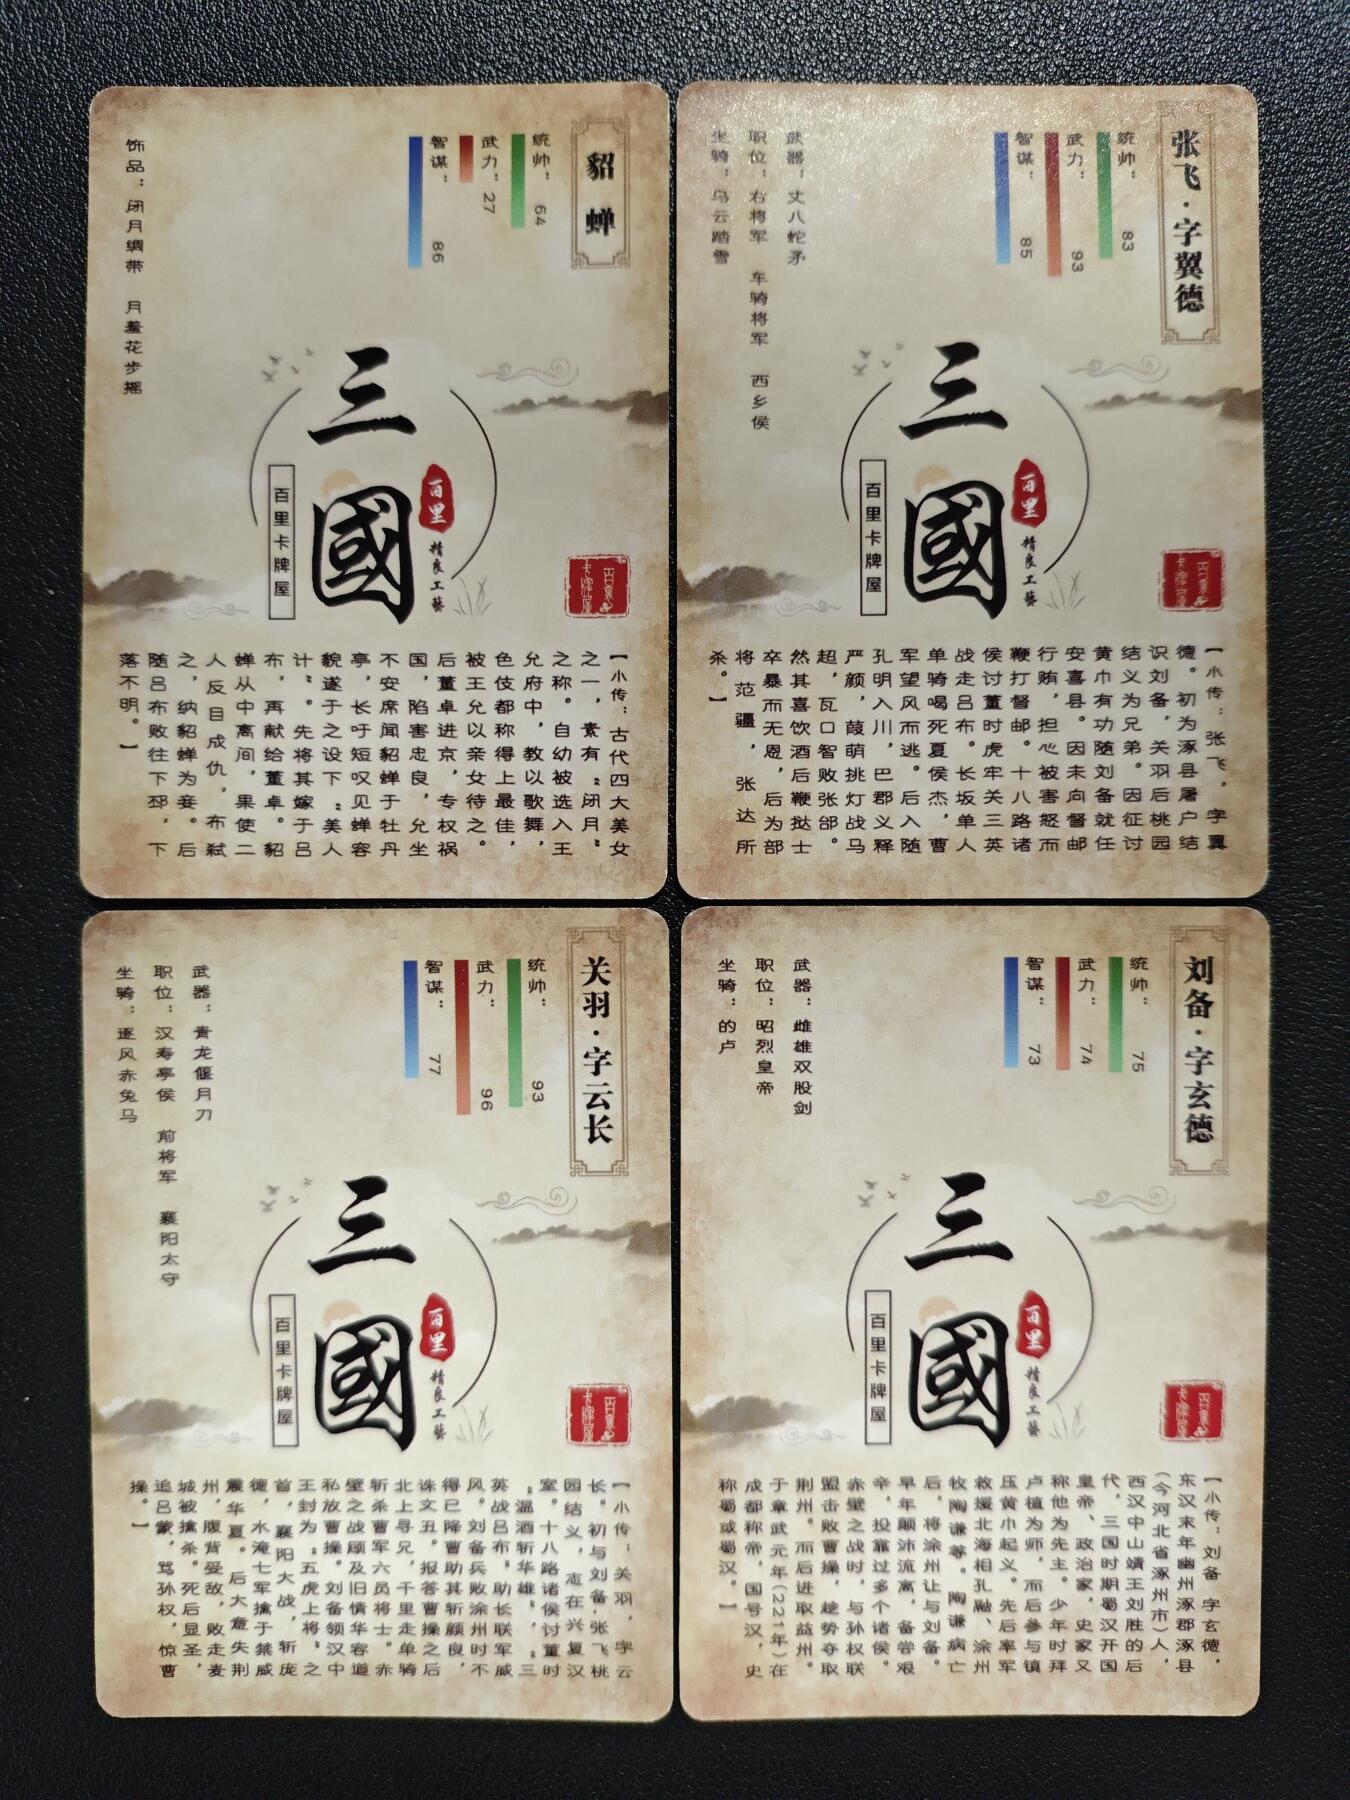 貂蝉
统帅：64
武力：27
智谋：86
饰品：闭月绸带 月羞花步摇
三國
百里
精良工艺
百里卡牌屋
【小传：古代四大美女
之一，素有“闭月”
之称。自幼被选入王
允府中，教以歌舞，
色伎都称得上最佳，
被王允以亲女待之。
后董卓进京，专权祸
国，陷害忠良，允坐
不安席闻貂蝉于牡丹
亭，长吁短叹见蝉容
貌遂于之设下“美人
计”。先将其嫁于吕
布，再献给董卓。貂
蝉从中离间，果使二
人反目成仇，布弑
之，纳貂蝉为妾。后
随吕布败往下邳，下
落不明。】
张飞·字翼德
统帅：83
武力：93
智谋：85
武器：丈八蛇矛
职位：右将军 车骑将军 西乡侯
坐骑：乌云踏雪
三國
百里
精良工艺
百里卡牌屋
【小传：张飞，字翼
德。初为涿县屠户结
识刘备，关羽后桃园
结义为兄弟。因征讨
黄巾有功随刘备就任
安喜县。因未向督邮
行贿，担心被害怒而
鞭打督邮。十八路诸
侯讨董时虎牢关三英
战走吕布。长坂单人
单骑喝死夏侯杰，曹
军望风而逃。后入随
孔明入川，巴郡义释
严颜，葭萌挑灯战马
超，瓦口智败张郃。
然其喜饮酒后鞭挞士
卒暴而无恩，后为部
将范疆，张达所
杀。】
关羽·字云长
统帅：93
武力：96
智谋：77
武器：青龙偃月刀
职位：汉寿亭侯 前将军 襄阳太守
坐骑：逐风赤兔马
三國
百里
精良工艺
百里卡牌屋
【小传：关羽，字云
长。初与刘备·张飞桃
园结义，志在兴复汉
室。十八路诸侯讨董时
“温酒斩华雄”，“三
英战吕布”，助长联军威
风。刘备兵败涂州时不
得已降曹助其斩颜良，
诛文丑。报答曹操之后
北上寻兄，千里走单骑
斩杀曹军六员将士。赤
壁之战顾及旧情华容道
私放曹操。刘备领汉中
王封为“五虎上将”之
首，襄阳大战，斩庞
德，水淹七军擒于禁威
震华夏。后大意失荆
州，腹背受敌，败走麦
城被擒杀。死后显圣，
追吕蒙，骂孙权，惊曹
操。】
刘备·字玄德
统帅：75
武力：74
智谋：73
武器：雌雄双股剑
职位：昭烈皇帝
坐骑：的卢
三國
百里
精良工艺
百里卡牌屋
【小传：刘备 字玄德，
东汉末年幽州涿郡涿县
（今河北省涿州市）人，
西汉中山靖王刘胜的后
代，三国时期蜀汉开国
皇帝、政治家，史家又
称他为先主。少年时拜
卢植为师，而后参与镇
压黄巾起义。先后率军
救援北海相孔融、涂州
牧陶谦等。陶谦病亡
后，将涂州让与刘备。
早年颠沛流离，备尝艰
辛，投靠过多个诸侯。
赤壁之战时，与孙权联
盟击败曹操，趁势夺取
荆州。而后进取益州。
于章武元年(221年)在
成都称帝，国号汉，史
称蜀或蜀汉。】